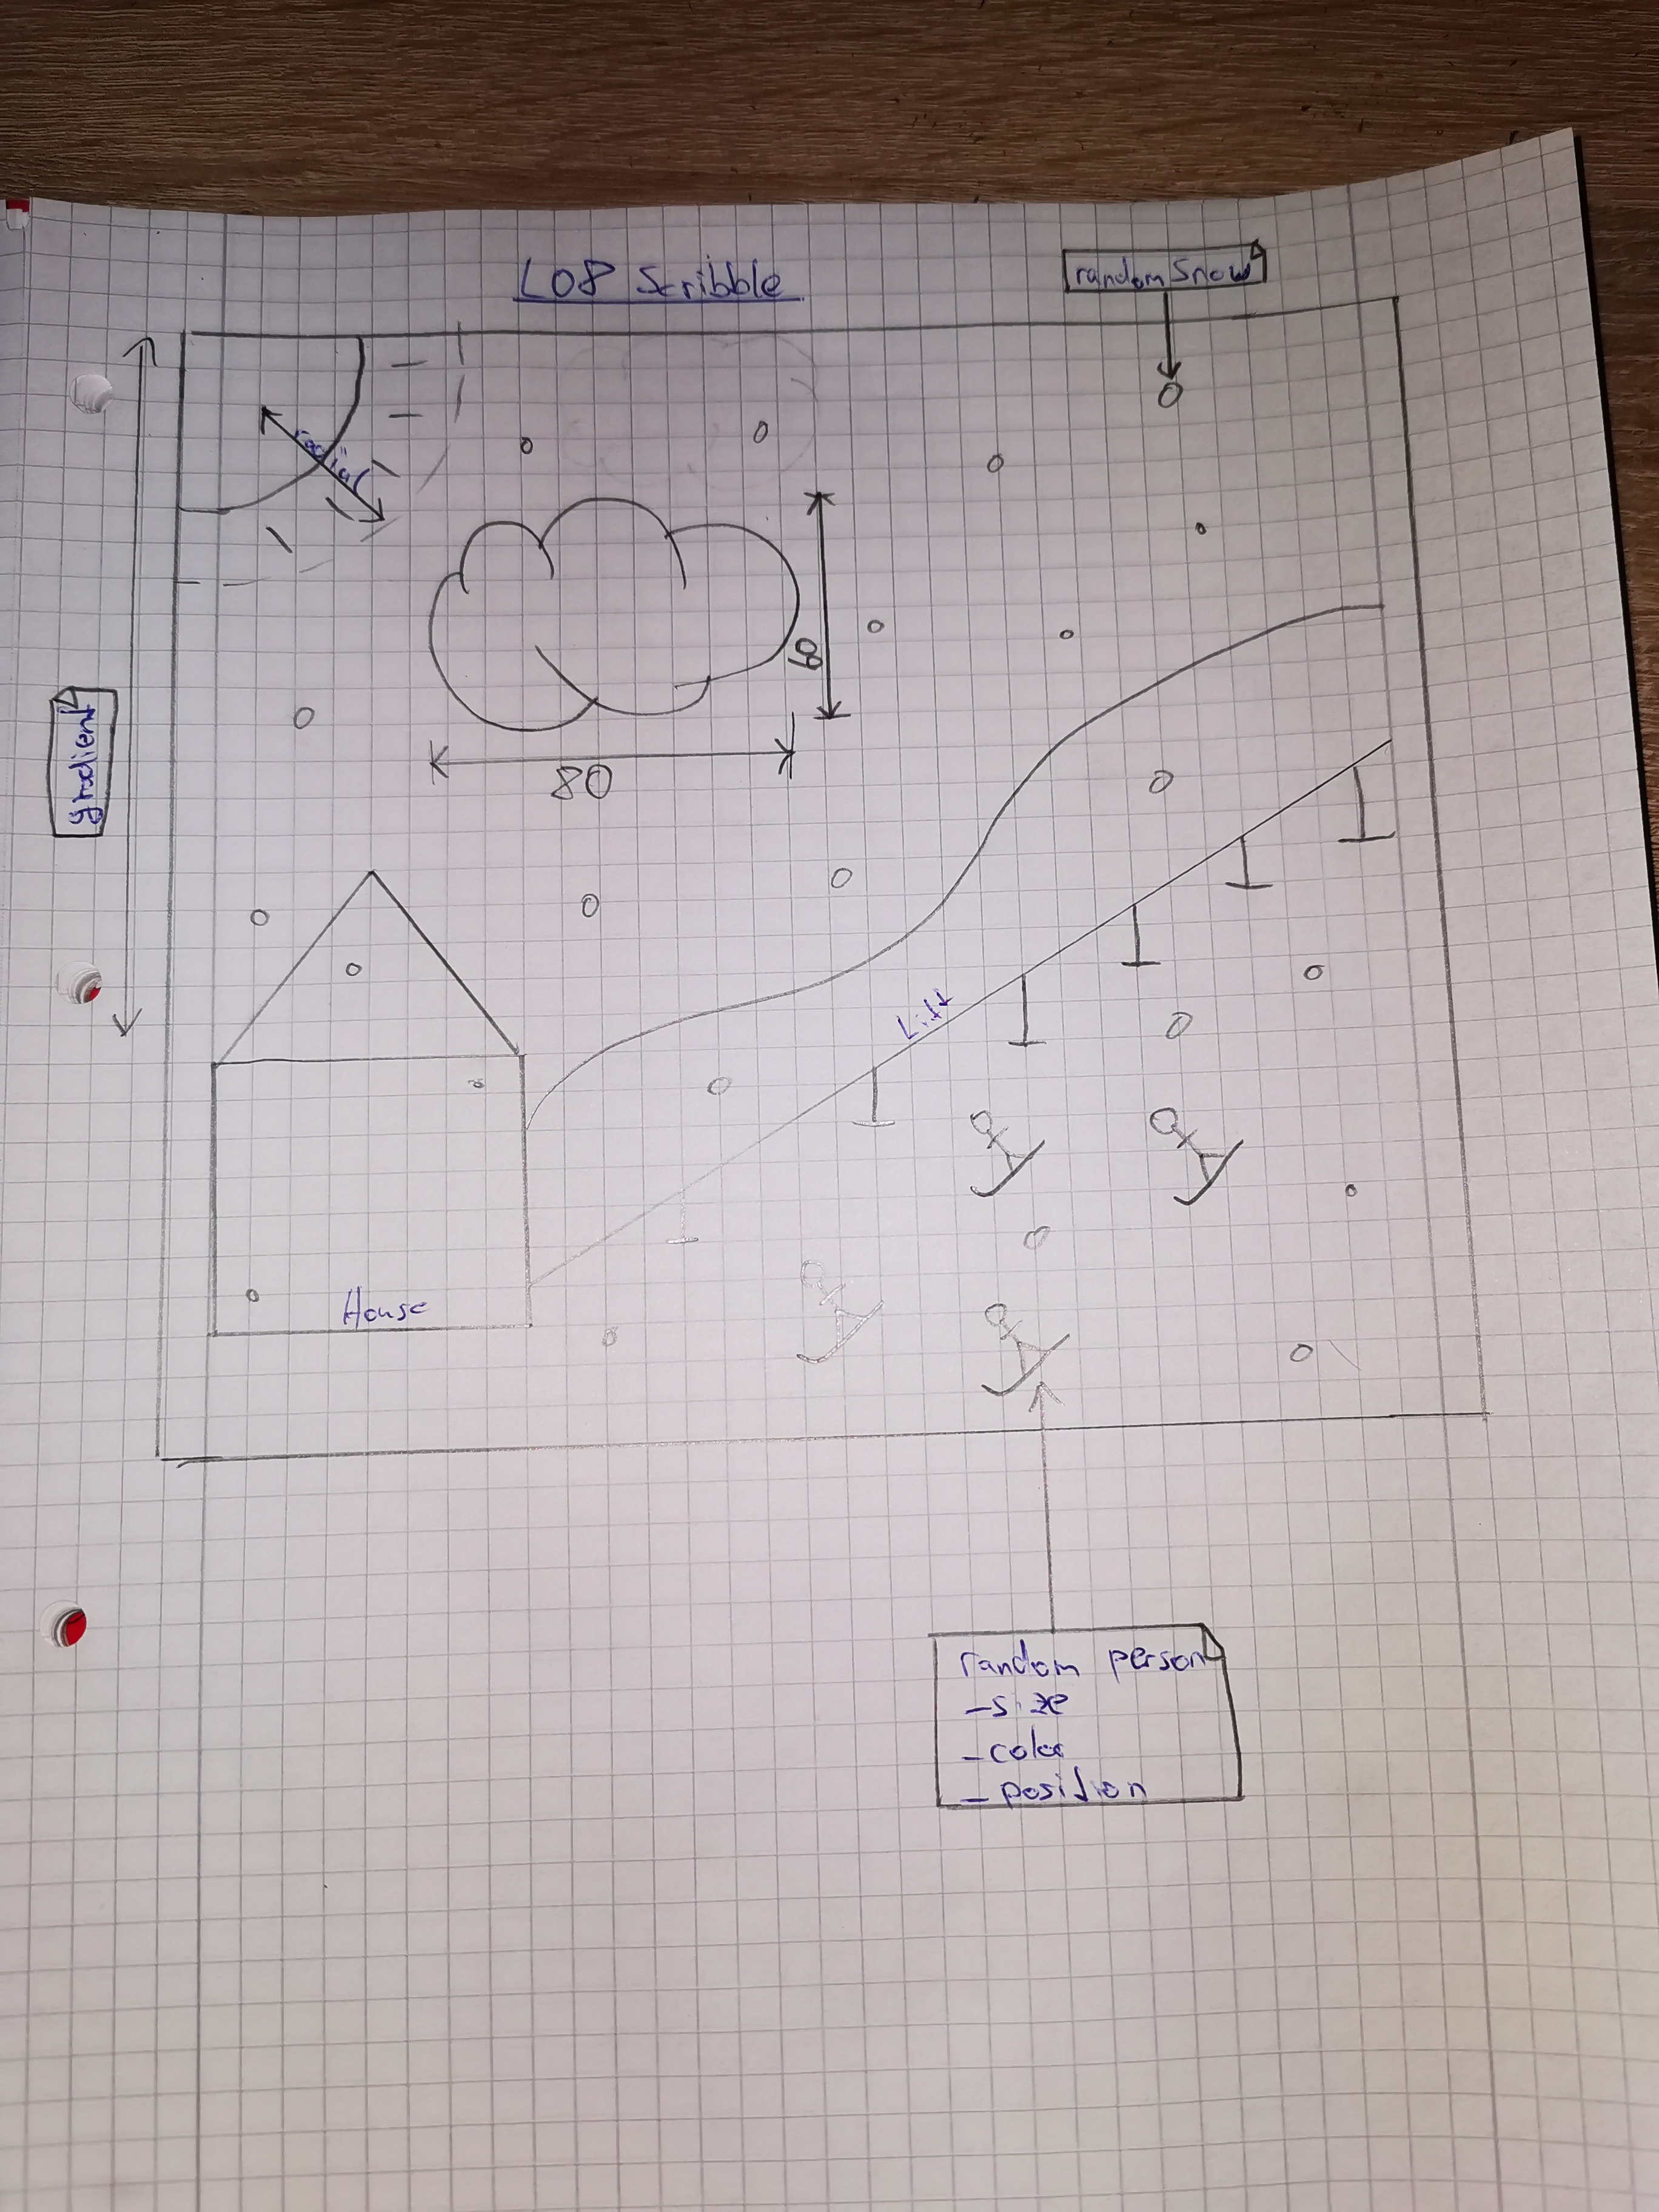 L08 Scribble
random Snow
radial
60
80
gradient
Lift
House
random person
- size
- color
- position